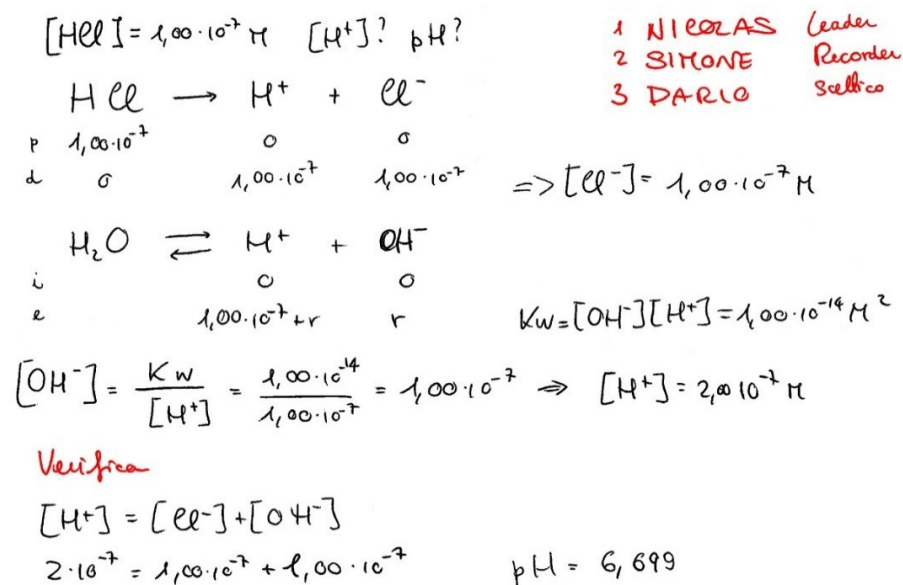 [HCl] = 1,00·10⁻⁷ M [H⁺]? pH?
1 NICOLAS Leader
2 SIMONE Recorder
3 DARIO Scettico
HCl → H⁺ + Cl⁻
p 1,00·10⁻⁷ 0 0
d 0 1,00·10⁻⁷ 1,00·10⁻⁷ => [Cl⁻] = 1,00·10⁻⁷ M
H₂O ⇄ H⁺ + OH⁻
i 0 0
e 1,00·10⁻⁷+r r Kw = [OH⁻][H⁺] = 1,00·10⁻¹⁴ M²
[OH⁻] = Kw / [H⁺] = 1,00·10⁻¹⁴ / 1,00·10⁻⁷ = 1,00·10⁻⁷ => [H⁺] = 2,00 10⁻⁷ M
Verifica
[H⁺] = [Cl⁻] + [OH⁻]
2·10⁻⁷ = 1,00·10⁻⁷ + 1,00·10⁻⁷ pH = 6,699